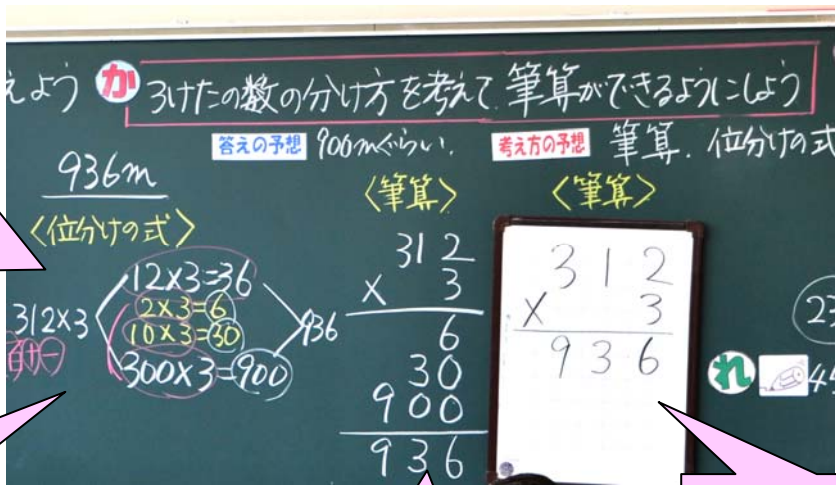 えよう
か 3けたの数の分け方を考えて、筆算ができるようにしよう
答えの予想 900mぐらい.
考え方の予想 筆算. 位分けの式
936m
〈位分けの式〉
312×3
12×3=36
2×3=6
10×3=30
300×3=900
936
百十一
〈筆算〉
312
× 3
6
30
900
936
〈筆算〉
312
× 3
936
れ